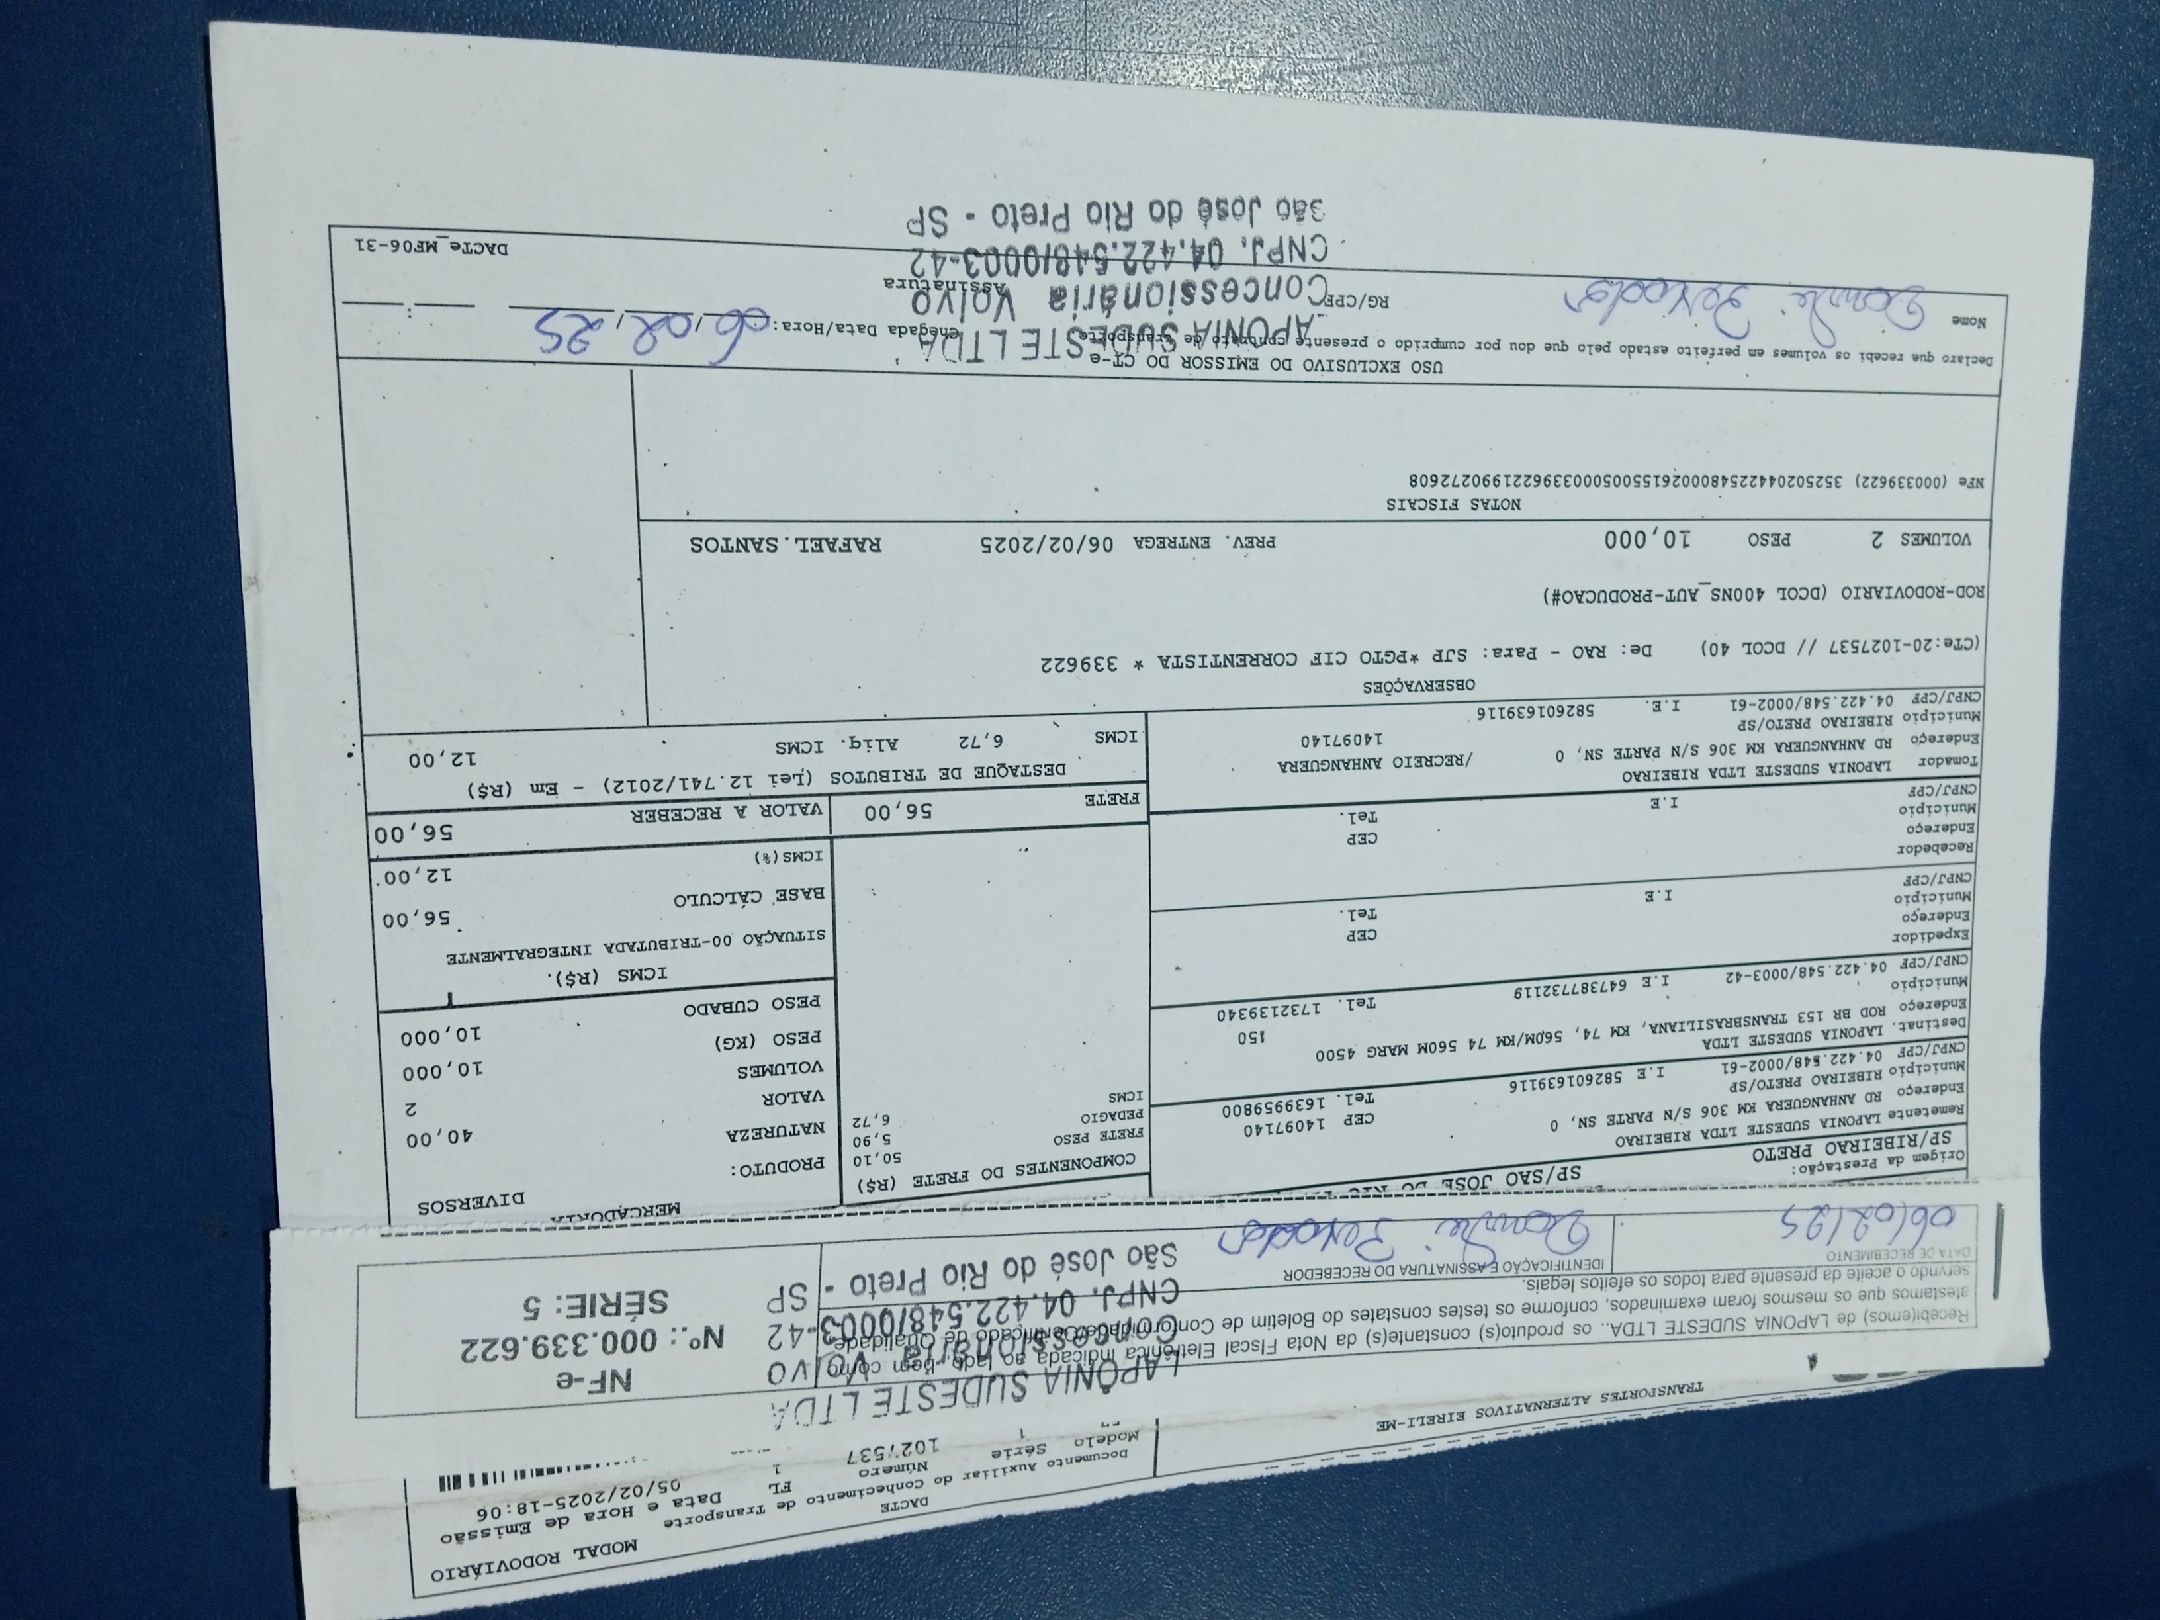 MODAL RODOVIÁRIO
DACTE
Documento Auxiliar do Conhecimento de Transporte
Modelo Série Número FL Data e Hora de Emissão
1 1027537 1 05/02/2025-18:06
TRANSPORTES ALTERNATIVOS EIRELI-ME
Recebi(emos) de LAPONIA SUDESTE LTDA.. os produto(s) constante(s) da Nota Fiscal Eletrônica indicada ao lado, bem como
atestamos que os mesmos foram examinados, conforme os testes constates do Boletim de Conformidade/Certificado de Qualidade,
servindo o aceite da presente para todos os efeitos legais.
DATA DE RECEBIMENTO
06/02/25
IDENTIFICAÇÃO E ASSINATURA DO RECEBEDOR
NF-e
Nº.: 000.339.622
SÉRIE: 5
LAPÔNIA SUDESTE LTDA
Concessionária Volvo
CNPJ. 04.422.548/0003-42
São José do Rio Preto - SP
Origem da Prestação:
SP/RIBEIRAO PRETO
SP/SAO JOSE DO RIO
Remetente LAPONIA SUDESTE LTDA RIBEIRAO
Endereço RD ANHANGUERA KM 306 S/N PARTE SN, 0
Município RIBEIRAO PRETO/SP CEP 14097140
CNPJ/CPF 04.422.548/0002-61 I.E 582601639116 Tel. 1639959800
Destinat. LAPONIA SUDESTE LTDA
Endereço ROD BR 153 TRANSBRASILIANA, KM 74, 560M/KM 74 560M MARG 4500
Município 150
CNPJ/CPF 04.422.548/0003-42 I.E 647387732119 Tel. 1732139340
Expedidor
Endereço
Município CEP
CNPJ/CPF I.E Tel.
Recebedor
Endereço
Município CEP
CNPJ/CPF I.E Tel.
Tomador LAPONIA SUDESTE LTDA RIBEIRAO
Endereço RD ANHANGUERA KM 306 S/N PARTE SN, 0 /RECREIO ANHANGUERA
Município RIBEIRAO PRETO/SP 14097140
CNPJ/CPF 04.422.548/0002-61 I.E. 582601639116
COMPONENTES DO FRETE (R$)
FRETE PESO 50,10
PEDAGIO 5,90
ICMS 6,72
FRETE 56,00
MERCADORIA
PRODUTO: DIVERSOS
NATUREZA
VALOR 40,00
VOLUMES 2
PESO (KG) 10,000
PESO CUBADO 10,000
ICMS (R$).
SITUAÇÃO 00-TRIBUTADA INTEGRALMENTE
BASE CÁLCULO 56,00
ICMS(%) 12,00
VALOR A RECEBER 56,00
DESTAQUE DE TRIBUTOS (Lei 12.741/2012) - Em (R$)
ICMS 6,72 Aliq. ICMS 12,00
OBSERVAÇÕES
(CTe:20-1027537 // DCOL 40) De: RAO - Para: SJP *PGTO CIF CORRENTISTA * 339622
ROD-RODOVIARIO (DCOL 400NS_AUT-PRODUCAO#)
VOLUMES 2 PESO 10,000 PREV. ENTREGA 06/02/2025 RAFAEL.SANTOS
NOTAS FISCAIS
USO EXCLUSIVO DO EMISSOR DO CT-e
Declaro que recebi os volumes em perfeito estado pelo que dou por cumprido o presente contrato de transporte
Chegada Data/Hora: 06/02/25
Nome
RG/CPF
Assinatura
LAPÔNIA SUDESTE LTDA
Concessionária Volvo
CNPJ. 04.422.548/0003-42
São José do Rio Preto - SP
DACTe_MF06-31